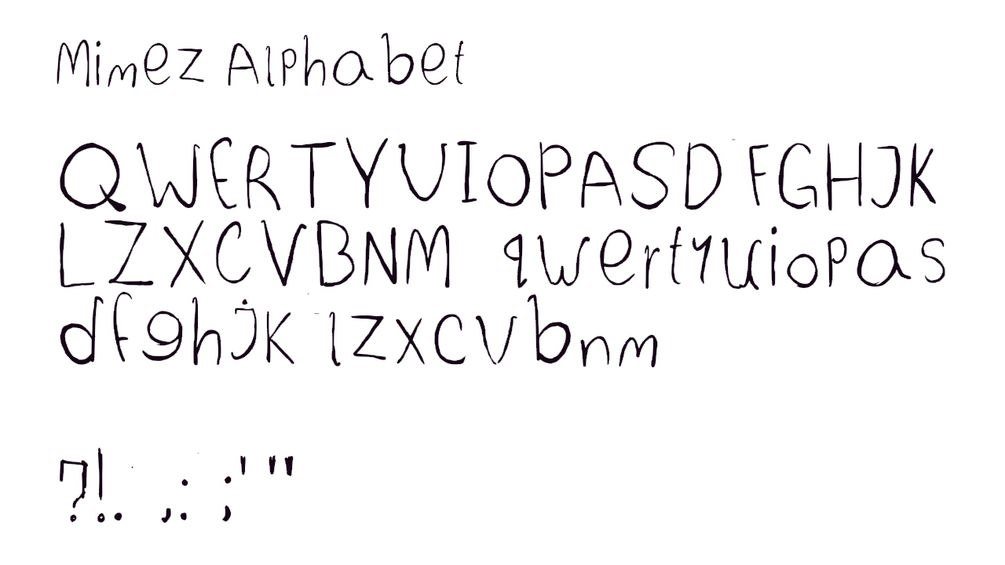 Mimez Alphabet
QWERTYUIOPASDFGHJK
LZXCVBNM qwertyuiopas
dfghjk lzxcvbnm
?!. ,: ;' "